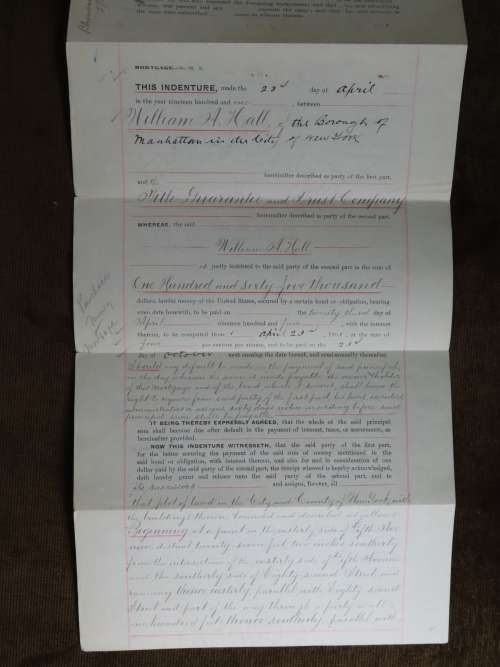 MORTGAGE
THIS INDENTURE, made the 23d day of April
in the year nineteen hundred and one, between
William H. Hall, of the Borough of
Manhattan in the City of New York
hereinafter described as party of the first part,
and the
Title Guarantee and Trust Company
hereinafter described as party of the second part,
WHEREAS, the said
William H. Hall
justly indebted to the said party of the second part in the sum of
One Hundred and sixty five thousand
dollars, lawful money of the United States, secured by a certain bond or obligation, bearing
even date herewith, to be paid on the twenty third day of
April nineteen hundred and , with the interest
thereon, to be computed from April 23d 1901, at the rate of
four per centum per annum, and to be paid on the 23d
day of October next ensuing the date hereof, and semi-annually thereafter.
Should any default be made in the payment of said principal
on the day whereon the same is made payable the owner & holder
of this mortgage and of the bond which it secures, shall have the
right to require from said party of the first part his heirs executors
administrators or assigns sixty days notice in writing before said
principal sum shall be payable.
IT BEING THEREBY EXPRESSLY AGREED, that the whole of the said principal
sum shall become due after default in the payment of interest, taxes, or assessments, as
hereinafter provided.
NOW THIS INDENTURE WITNESSETH, that the said party of the first part,
for the better securing the payment of the said sum of money mentioned in the
said bond or obligation, with interest thereon, and also for and in consideration of one
dollar paid by the said party of the second part, the receipt whereof is hereby acknowledged,
doth hereby grant and release unto the said party of the second part, and to
its successors and assigns, forever, all
that plot of land in the City and County of New York, with
the buildings thereon bounded and described as follows:
Beginning at a point in the easterly side of Fifth Ave
nue, distant twenty seven feet two inches southerly
from the intersection of the easterly side of Fifth Avenue
and the southerly side of Eighty second Street and
running thence easterly, parallel with Eighty second
Street and part of the way through a party wall
one hundred feet thence southerly, parallel with